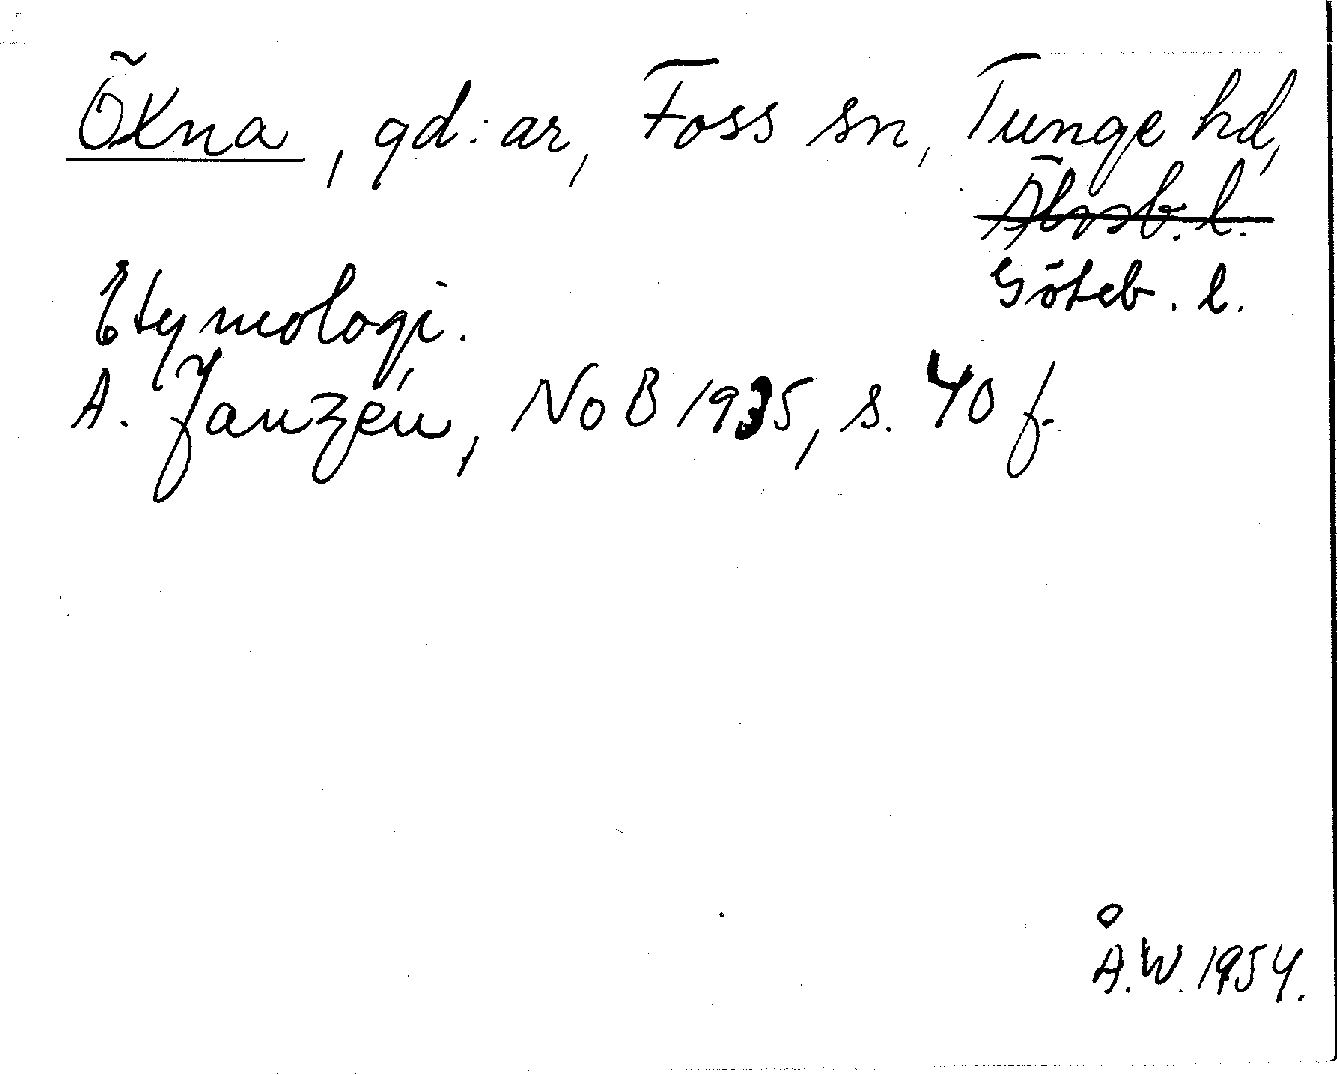 Ökna, gd:ar, Foss sn, Tunge hd,
Älvsb. l.
Göteb. l.
Etymologi.
A. Janzén, NoB 1935, s. 40 f.
Å.W. 1954.